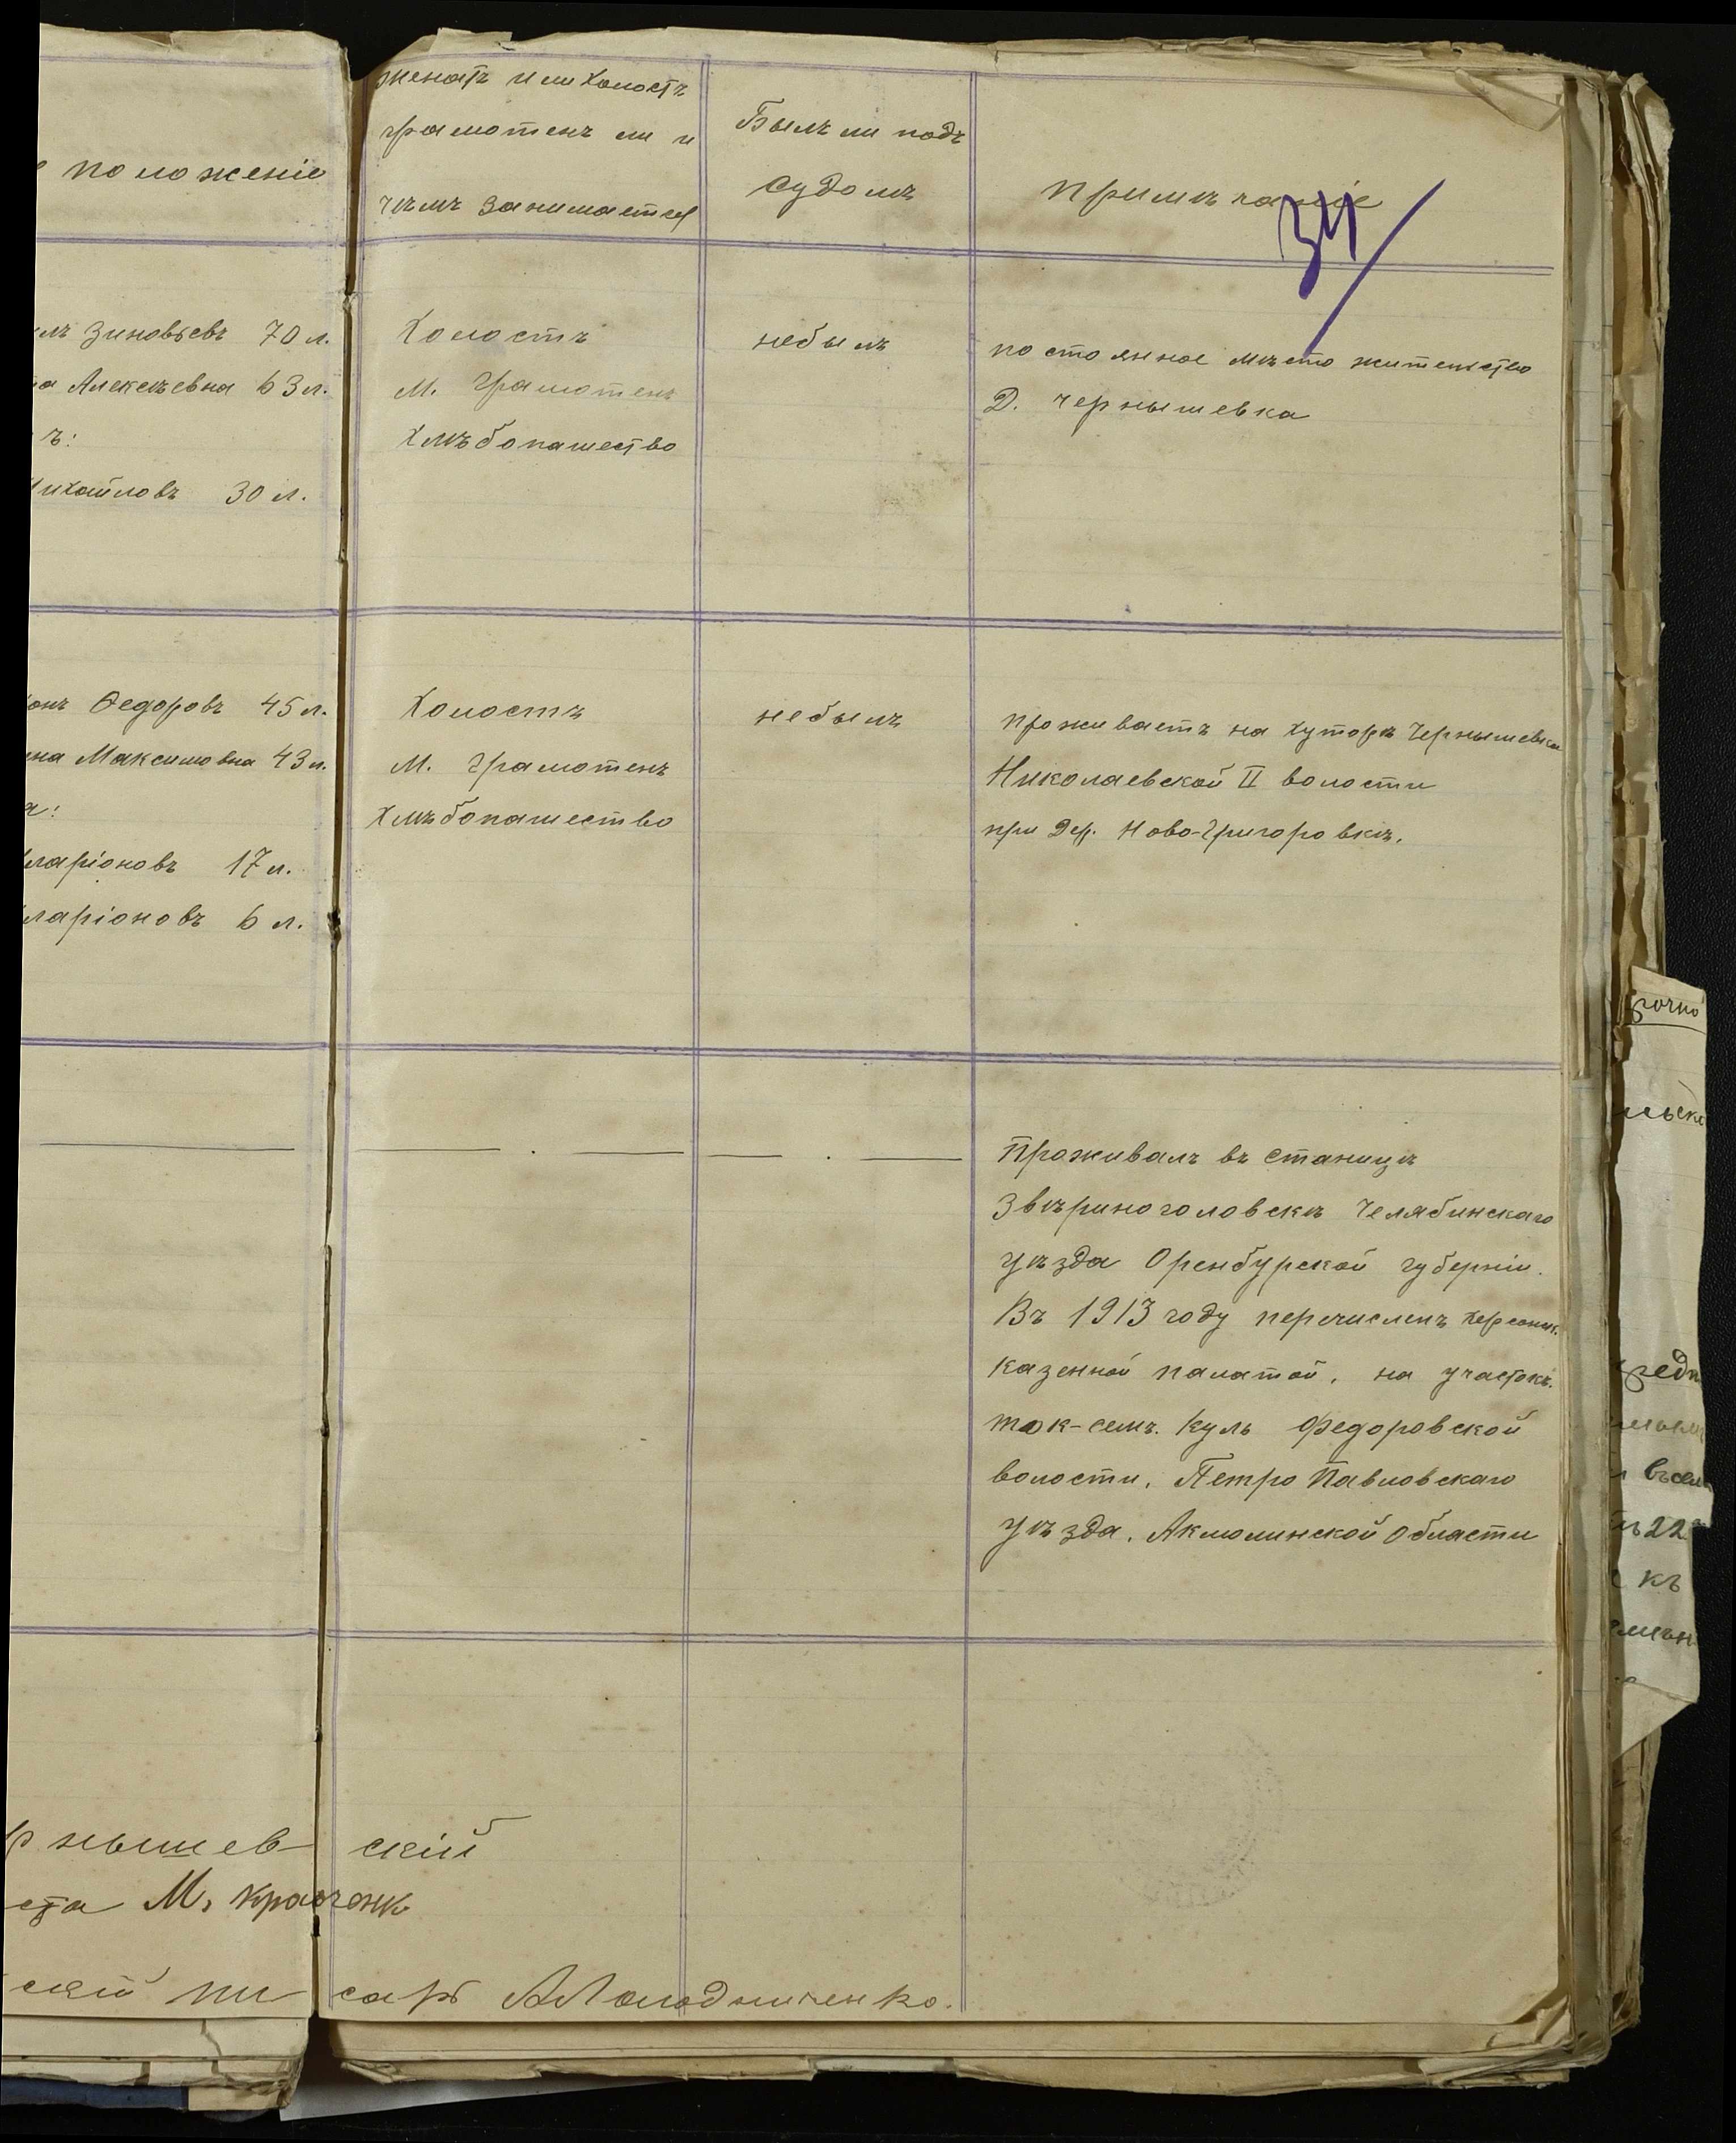 положеніе
женатъ или холостъ
грамотенъ ли и
чѣмъ занимается
Былъ ли подъ
судомъ
примѣчаніе
34
лъ Зиновьевъ 70 л.
а Алексѣевна 63 л.
ъ:
ихайловъ 30 л.
Холостъ
М. Грамотенъ
Хлѣбопашество
небылъ
постоянное мѣсто жительство
Д. Чернышевка
онъ Ѳедоровъ 45 л.
на Максимовна 43 л.
ларіоновъ 17 л.
ларіоновъ 6 л.
Холостъ
М. Грамотенъ
Хлѣбопашество
небылъ
проживаетъ на хуторѣ Чернышевка
Николаевской II волости
при Дер. Ново-Григоровкѣ.
Проживалъ въ станицѣ
Звѣриноголовскѣ Челябинскаго
уѣзда Оренбурской губерніи.
Въ 1913 году перечисленъ Херсонск.
казенной палатой, на участокъ.
ток-семъ. Куль Федоровской
волости, Петро Павловскаго
уѣзда, Акмолинской области
рнышевскій
ста М. Кравченко
скій писарь
рочно
22
къ